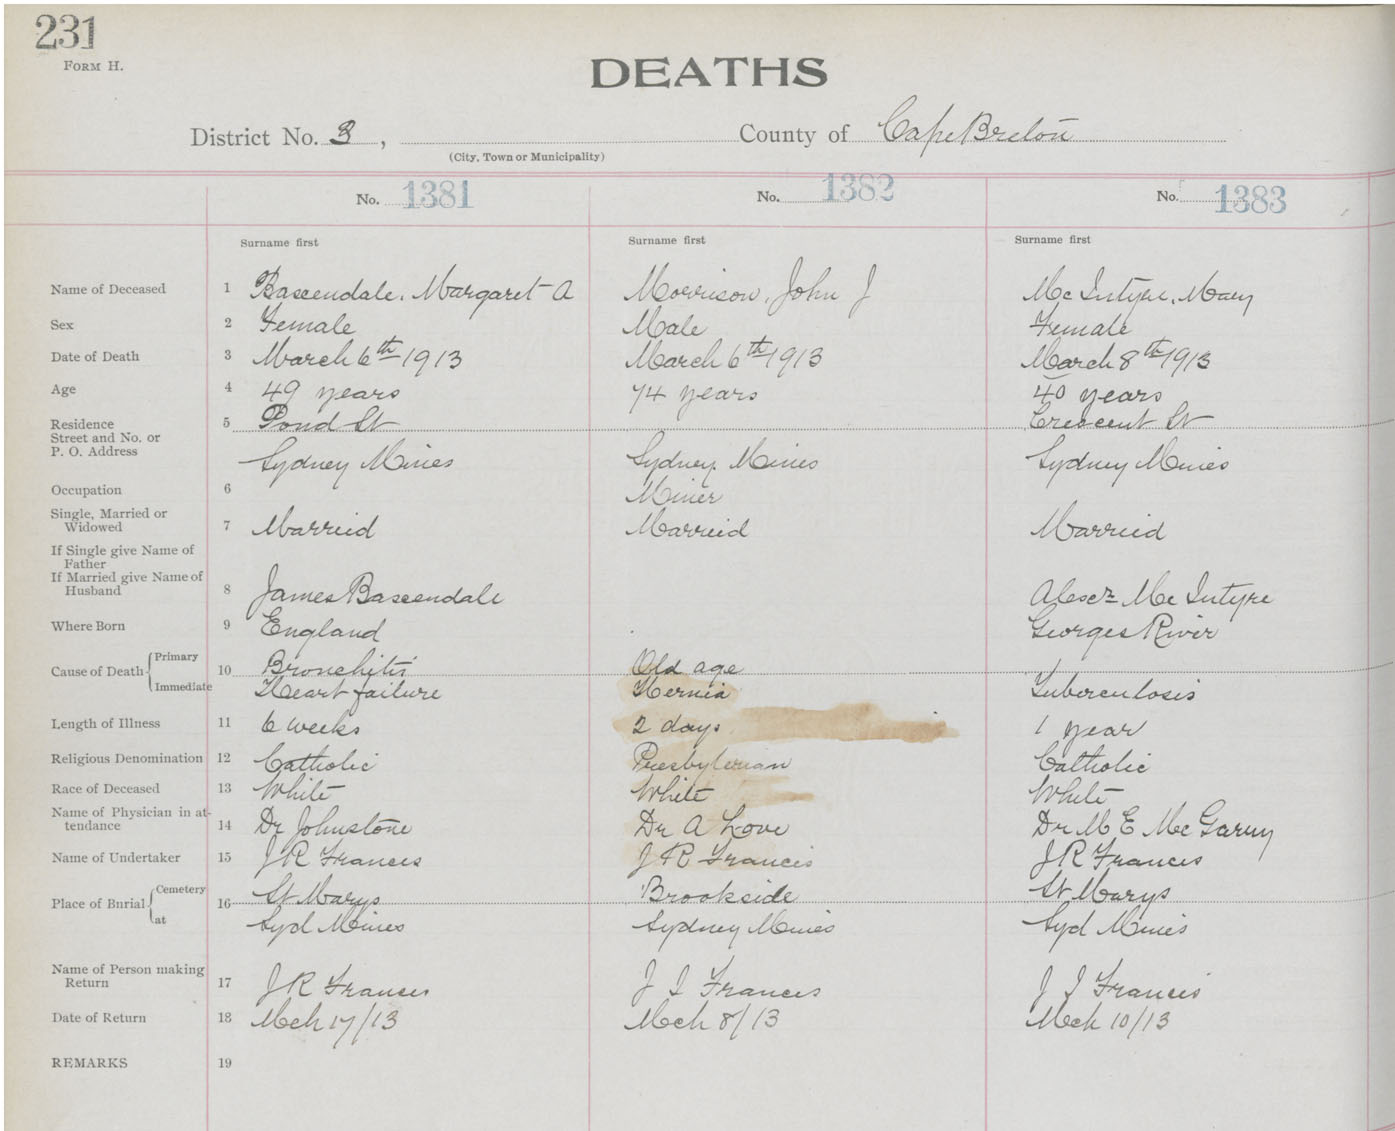 231
FORM H.
DEATHS
District No. 3, County of Cape Breton
(City, Town or Municipality)
No. 1381 No. 1382 No. 1383
Surname first Surname first Surname first
Name of Deceased 1 Bascendale, Margaret A Morrison, John J McIntyre, Mary
Sex 2 Female Male Female
Date of Death 3 March 6th 1913 March 6th 1913 March 8th 1913
Age 4 49 years 74 years 40 years
Residence 5 Pond St Crescent St
Street and No. or
P. O. Address Sydney Mines Sydney Mines Sydney Mines
Occupation 6 Miner
Single, Married or
Widowed 7 Marreid Marreid Married
If Single give Name of
Father
If Married give Name of
Husband 8 James Bascendale Alexr McIntyre
Where Born 9 England Georges River
Cause of Death Primary 10 Bronchitis Old age
Immediate Heart failure Hernia Tuberculosis
Length of Illness 11 6 weeks 2 days 1 year
Religious Denomination 12 Catholic Presbyterian Catholic
Race of Deceased 13 White White White
Name of Physician in at-
tendance 14 Dr Johnstone Dr A Love Dr M E McGarry
Name of Undertaker 15 J R Francis J R Francis J R Francis
Place of Burial Cemetery 16 St Marys Brookside St Marys
at Syd Mines Sydney Mines Syd Mines
Name of Person making
Return 17 J R Francis J I Francis J I Francis
Date of Return 18 Mch 17/13 Mch 8/13 Mch 10/13
REMARKS 19